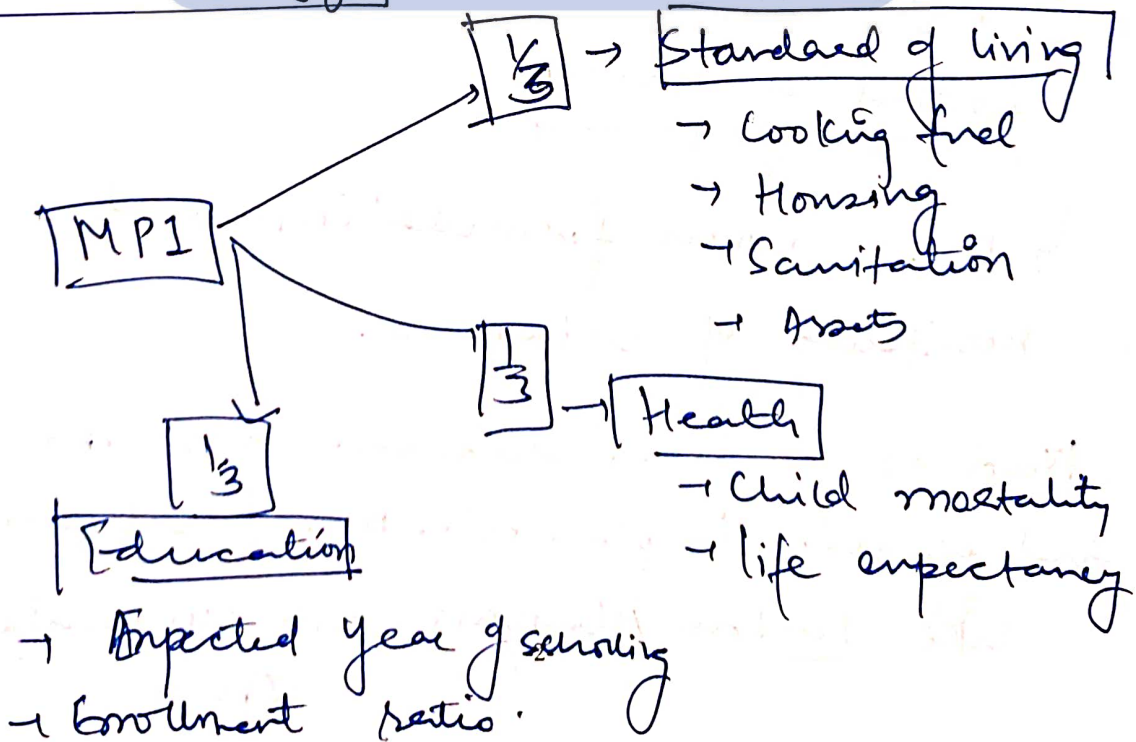 1/3 → Standard of living
→ Cooking fuel
→ Housing
→ Sanitation
→ Assets
MPI
1/3 → Health
→ Child mortality
→ life expectancy
1/3
Education
→ Expected year of schooling
→ Enrollment ratio.